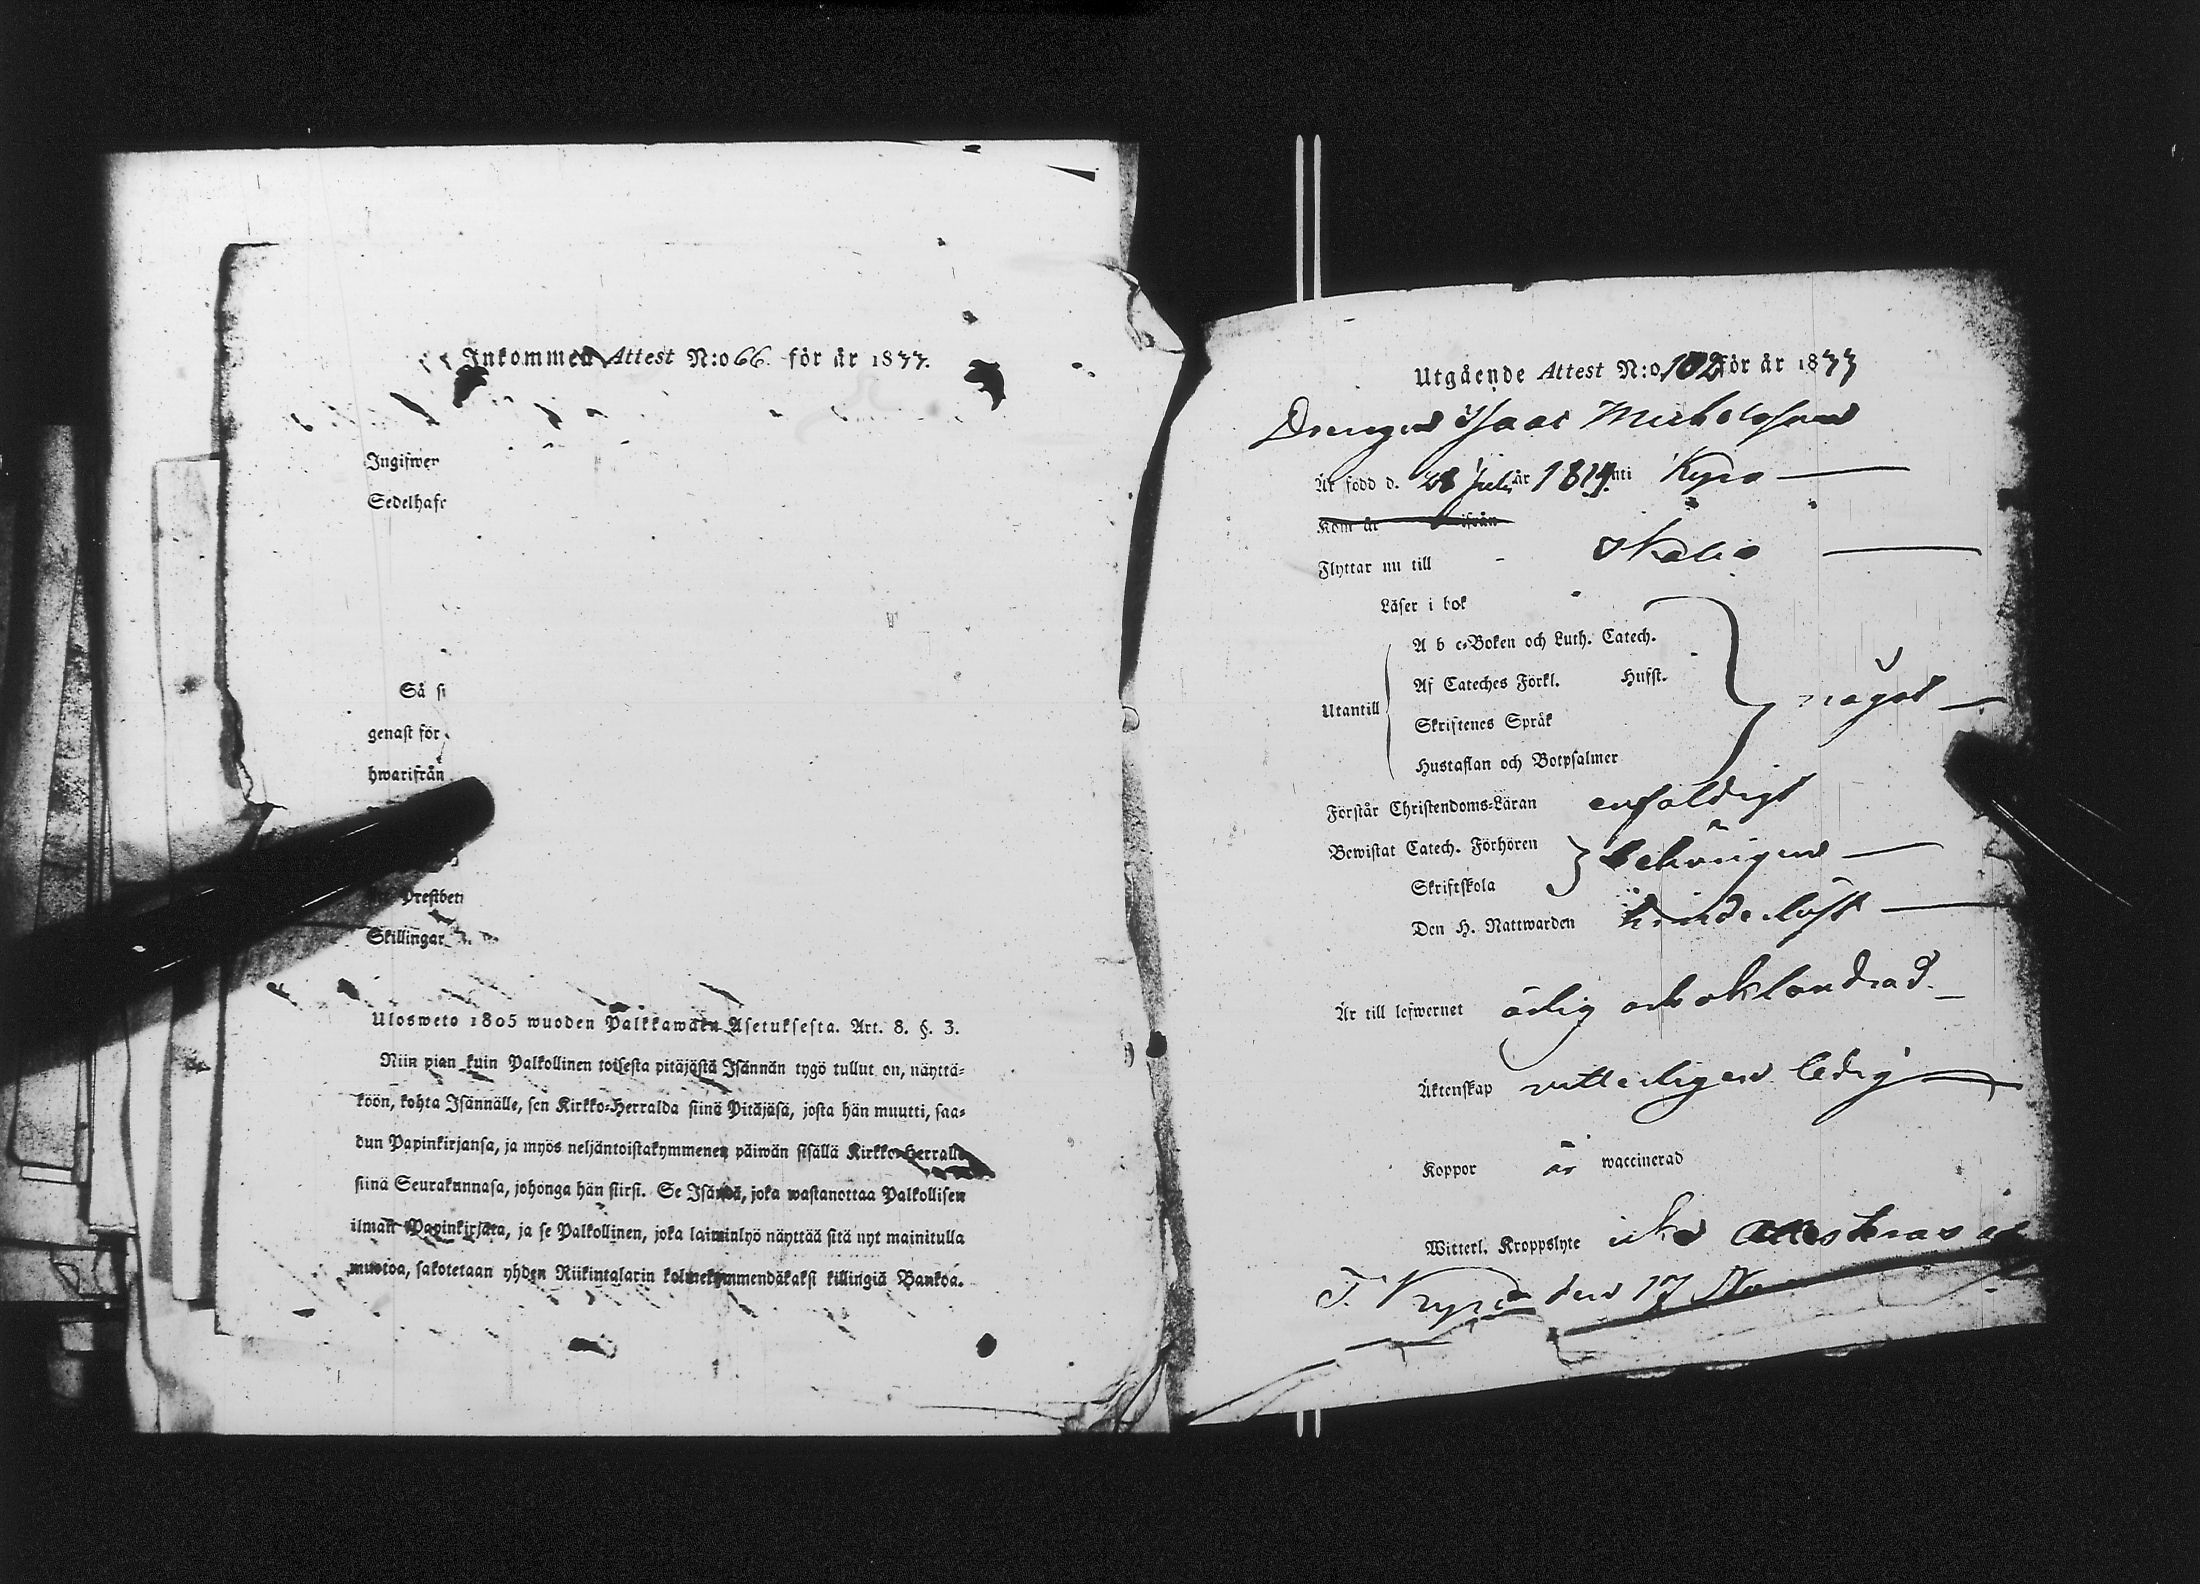 Inkommen Attest N:o 66. för år 1833.
Ingifwer
Sedelhafr
Så
genast för
hwarifrån
Prestbet
Skillingar
Ulosweto 1805 wuoden Palkkawäen Asetuksesta. Art. 8. §. 3.
Niin pian kuin Palkollinen toisesta pitäjästä Isännän tygö tullut on, näyttä-
köön, kohta Isännälle, sen Kirkko-Herralda siinä Pitäjäsä, josta hän muutti, saa-
dun Papinkirjansa, ja myös neljäntoistakymmenen päiwän sisällä Kirkko-Herralle
siinä Seurakunnasa, johonga hän siirsi. Se Isändä, joka wastanottaa Palkollisen
ilman Papinkirjata, ja se Palkollinen, joka laiminlyö näyttää sitä nyt mainitulla
muotoa, sakotetaan yhden Riikintalarin kolmekymmendäkaksi killingiä Bankoa.
Utgående Attest N:o 102 för år 1833
Drengen Isaac Michelsson
Är född d. 28 Juli år 1814 uti Kyro
Kom år ifrån
Flyttar nu till Ikalis
Läser i bok
Utantill
A b c-Boken och Luth. Catech.
Af Cateches Förkl. Hufst.
Skriftenes Språk
Hustaflan och Botpsalmer
något
Förstår Christendoms-Läran enfaldigt
Bewistat Catech. Förhören behörigen
Skriftskola
Den H. Nattwarden hinderlöst
Är till lefwernet ärlig och oklandrad
Äktenskap vitterligen ledig
Koppor är waccinerad
Witterl. Kroppslyte icke Attesteras af
T. Kyro den 17 No